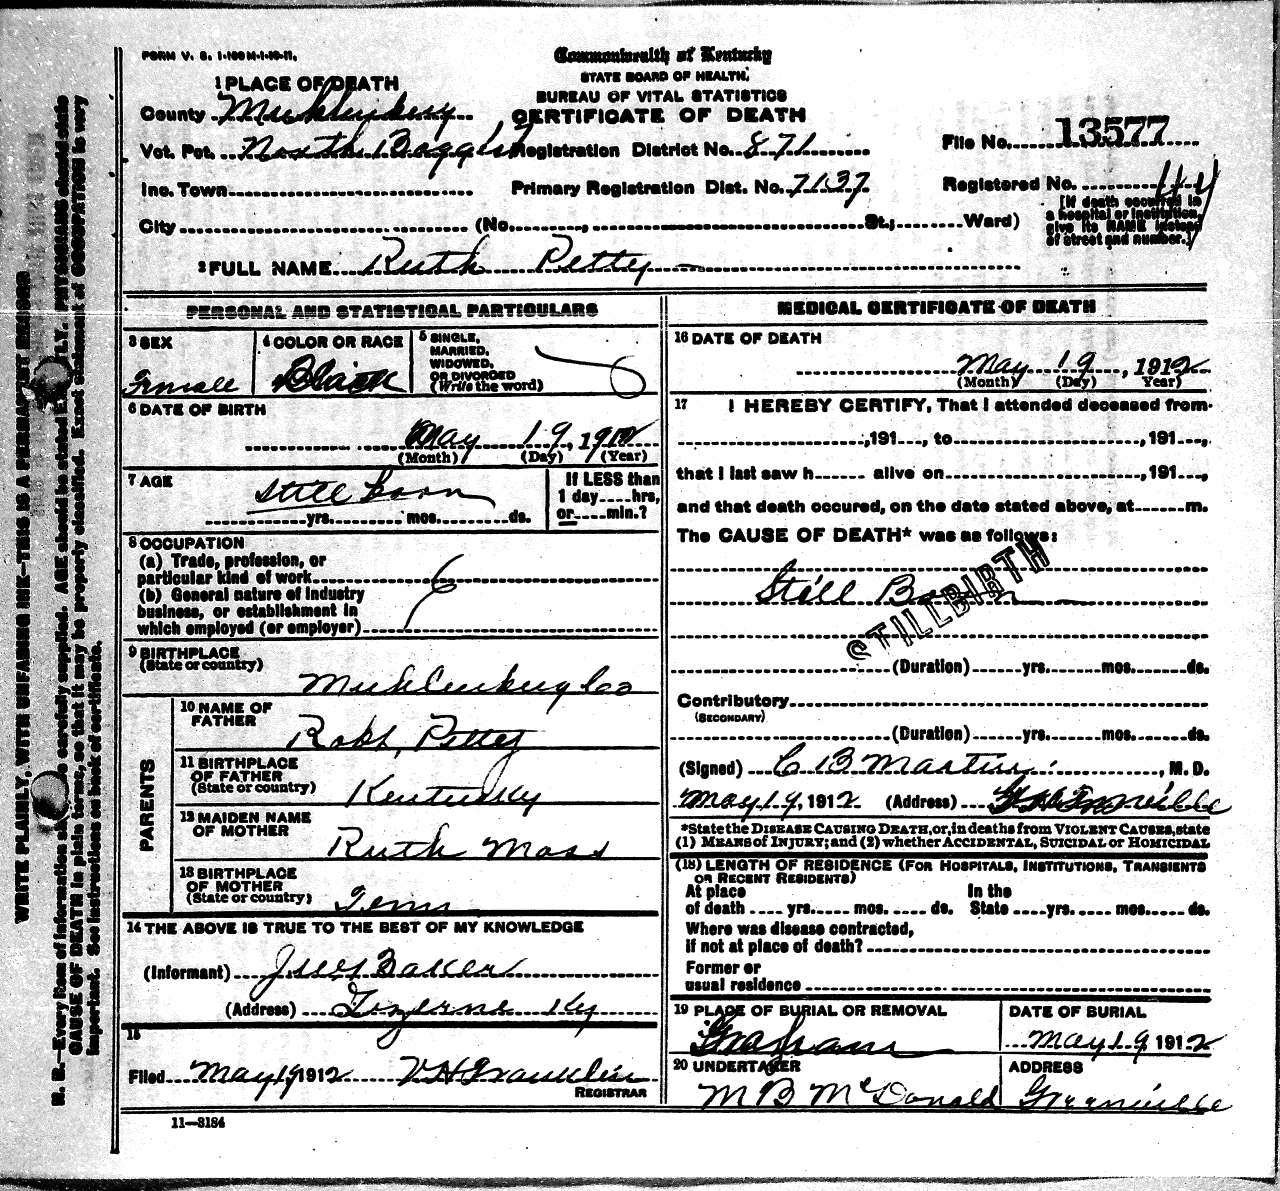 FORM V. S. 1-100M-1-10-11.
Commonwealth of Kentucky
STATE BOARD OF HEALTH,
BUREAU OF VITAL STATISTICS
CERTIFICATE OF DEATH
1 PLACE OF DEATH
County Muhlenburg
Vot. Pct. North Boggess Registration District No. 871
File No. 13577
Inc. Town Primary Registration Dist. No. 7137
Registered No. 44
City (No. , St.; Ward)
[If death occurred in
a hospital or institution,
give its NAME instead
of street and number.]
2 FULL NAME Ruth Petty
PERSONAL AND STATISTICAL PARTICULARS
3 SEX
Female
4 COLOR OR RACE
Black
5 SINGLE,
MARRIED,
WIDOWED,
OR DIVORCED
(Write the word)
6 DATE OF BIRTH
May 19, 1912
(Month) (Day) (Year)
7 AGE
Still born
yrs. mos. ds.
If LESS than
1 day hrs,
or min.?
8 OCCUPATION
(a) Trade, profession, or
particular kind of work
(b) General nature of industry
business, or establishment in
which employed (or employer)
9 BIRTHPLACE
(State or country)
Muhlenburg Co
PARENTS
10 NAME OF
FATHER
Robt, Petty
11 BIRTHPLACE
OF FATHER
(State or country)
Kentucky
12 MAIDEN NAME
OF MOTHER
Ruth Moss
13 BIRTHPLACE
OF MOTHER
(State or country)
Tenn
14 THE ABOVE IS TRUE TO THE BEST OF MY KNOWLEDGE
(Informant) Baker
(Address) Luzerne Ky
15
Filed May 19 1912 V H Franklin
REGISTRAR
11—3184
MEDICAL CERTIFICATE OF DEATH
16 DATE OF DEATH
May 19, 1912
(Month) (Day) Year)
17 I HEREBY CERTIFY, That I attended deceased from
,191 , to ,191 ,
that I last saw h alive on ,191 ,
and that death occured, on the date stated above, at m.
The CAUSE OF DEATH* was as follows:
Still Born
STILLBIRTH
(Duration) yrs. mos. ds.
Contributory
(SECONDARY)
(Duration) yrs. mos. ds.
(Signed) C B Martin , M. D.
May 19, 1912 (Address) Greenville
*State the DISEASE CAUSING DEATH, or, in deaths from VIOLENT CAUSES, state
(1) MEANS of INJURY; and (2) whether ACCIDENTAL, SUICIDAL or HOMICIDAL
(18) LENGTH OF RESIDENCE (FOR HOSPITALS, INSTITUTIONS, TRANSIENTS
OR RECENT RESIDENTS)
At place In the
of death yrs. mos. ds. State yrs. mos. ds.
Where was disease contracted,
if not at place of death?
Former or
usual residence
19 PLACE OF BURIAL OR REMOVAL
Graham
DATE OF BURIAL
May 19 1912
20 UNDERTAKER
M B McDonald
ADDRESS
Greenville
WRITE PLAINLY, WITH UNFADING INK—THIS IS A PERMANENT RECORD
N. B.—Every item of information should be carefully supplied. AGE should be stated EXACTLY. PHYSICIANS should state
CAUSE OF DEATH in plain terms, so that it may be properly classified. Exact statement of OCCUPATION is very
important. See instructions on back of certificate.